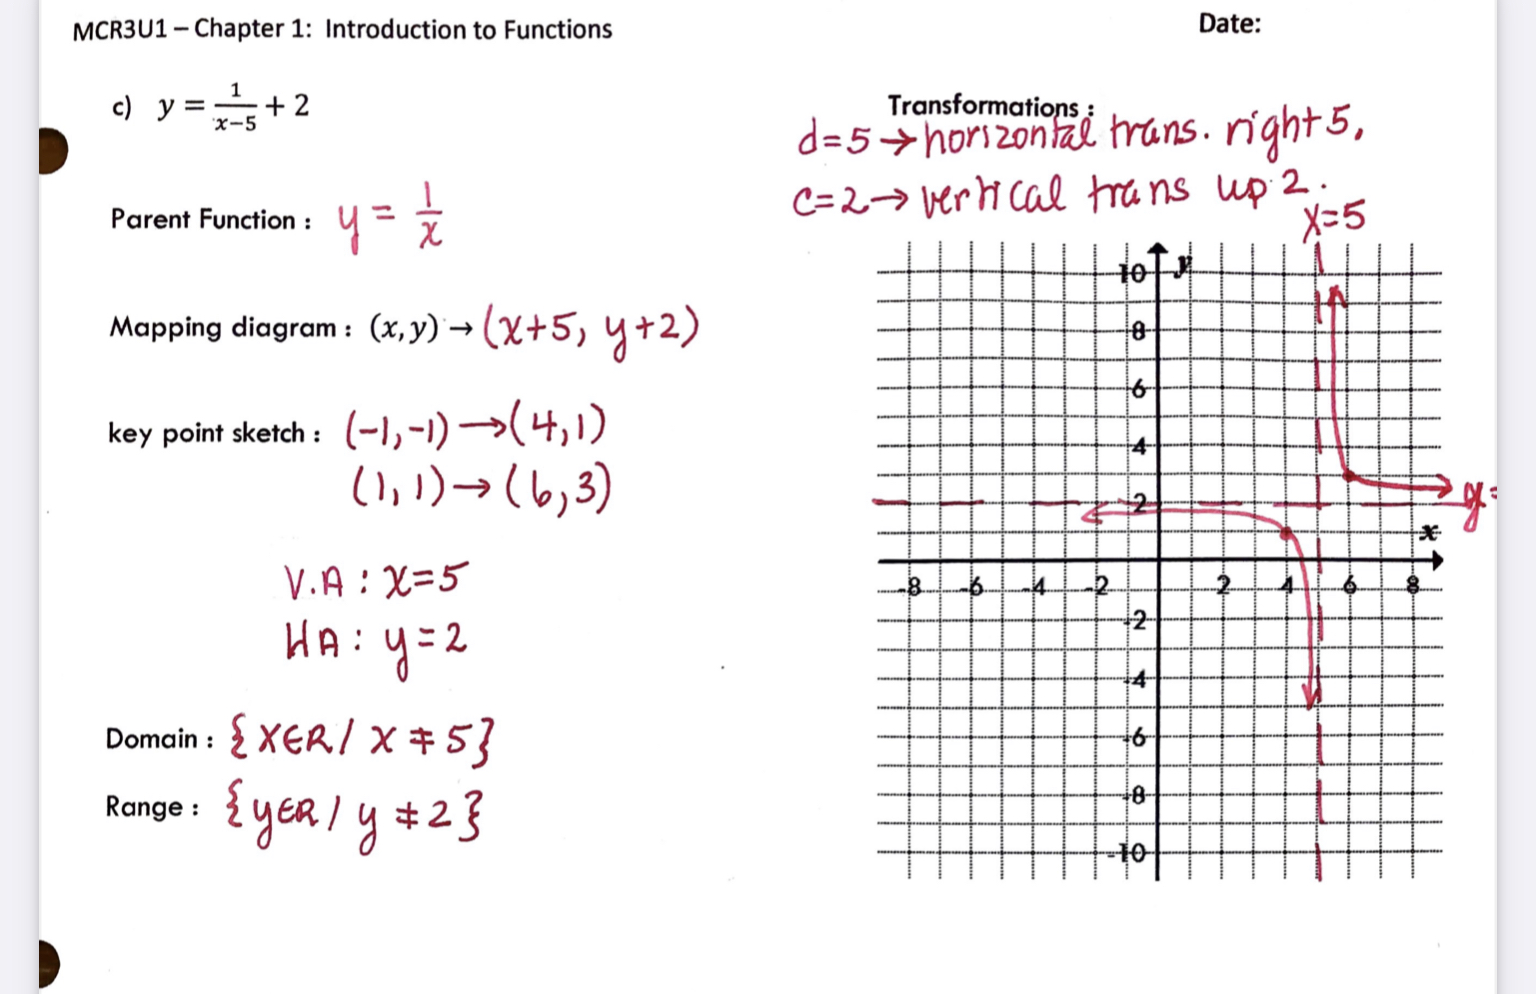 MCR3U1 – Chapter 1: Introduction to Functions
Date:
c) y = 1/x−5 + 2
Transformations :
d=5 → horizontal trans. right 5.
c=2 → vertical trans up 2.
Parent Function : y = 1/x
Mapping diagram : (x, y) → (x+5, y+2)
key point sketch : (-1,-1) → (4,1)
(1,1) → (6,3)
V.A : x=5
HA : y=2
Domain : {XER/ X ≠ 5}
Range : {yER/ y ≠ 2}
x=5
10 y
8
6
4
2
y=
x
-8 -6 -4 -2 2 4 6 8
-2
-4
-6
-8
-10